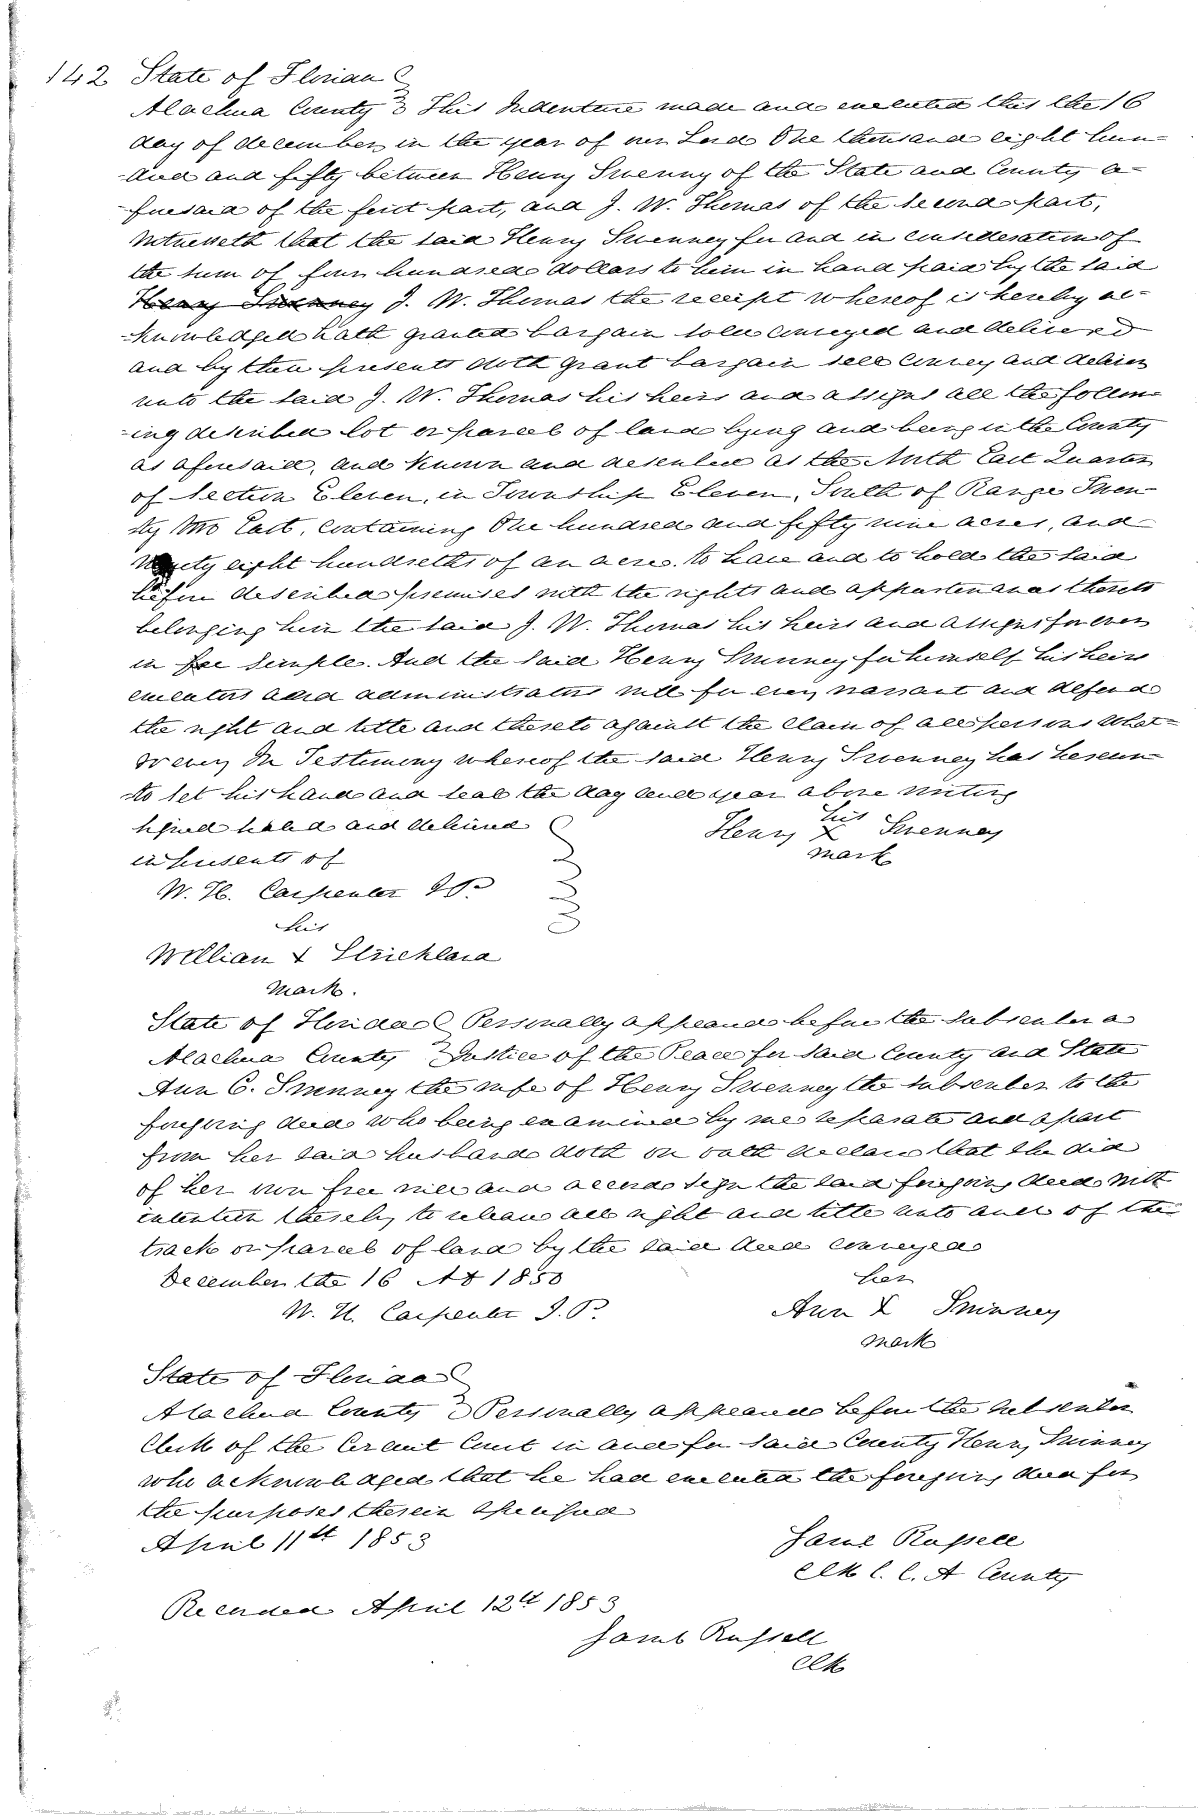 142 State of Florida
Alachua County } This Indenture made and executed this the 16
day of december in the year of our Lord One thousand eight hun-
dred and fifty between Henry Swenny of the State and County a-
foresaid of the first part, and J. W. Thomas of the second part,
Witnesseth that the said Henry Swenney for and in consideration of
the sum of four hundred dollars to him in hand paid by the said
Henry Swenney J. W. Thomas the receipt whereof is hereby ac-
knowledged hath granted bargain sold conveyed and delivered
and by these presents doth grant bargain sell convey and deliver
unto the said J. W. Thomas his heirs and assigns all the follow-
ing described lot or parcel of land lying and being in the County
as aforesaid, and known and described as the North East Quarter
of Section Eleven, in Township Eleven, South of Range Twen-
ty two East, containing One hundred and fifty nine acres, and
eight hundredths of an acre. to have and to hold the said
before described premises with the rights and appurtenances thereto
belonging him the said J. W. Thomas his heirs and assigns forever
in fee simple. And the said Henry Swenney for himself his heirs
executors and administrators will forever warrant and defend
the right and title and thereto against the claim of all persons what-
soever In Testimony whereof the said Henry Swenney has hereun-
to set his hand and seal the day and year above writing
Signed sealed and delivered
in presents of
his
Henry X Swenney
mark
W. H. Carpenter J.P.
his
William X Strickland
mark.
State of Florida } Personally appeared before the subscriber a
Alachua County } Justice of the Peace for said County and State
Ann C. Swenney the wife of Henry Swenney the subscriber to the
foregoing deed who being examined by me separate and apart
from her said husband doth on oath declare that she did
of her own free will and accord sign the said foregoing deed with
intention thereby to release all right and title unto and of the
track or parcel of land by the said deed conveyed
December the 16 AD 1850
W. H. Carpenter J. P.
her
Ann X Swinney
mark
State of Florida
Alachua County } Personally appeared before the subscriber
Clerk of the Circuit Court in and for said County Henry Swinney
who acknowledged that he had executed the foregoing deed for
the purposes therein expressed
April 11th 1853
Saml Russell
Clk C. C. A County
Recorded April 12th 1853
Saml Russell
Clk